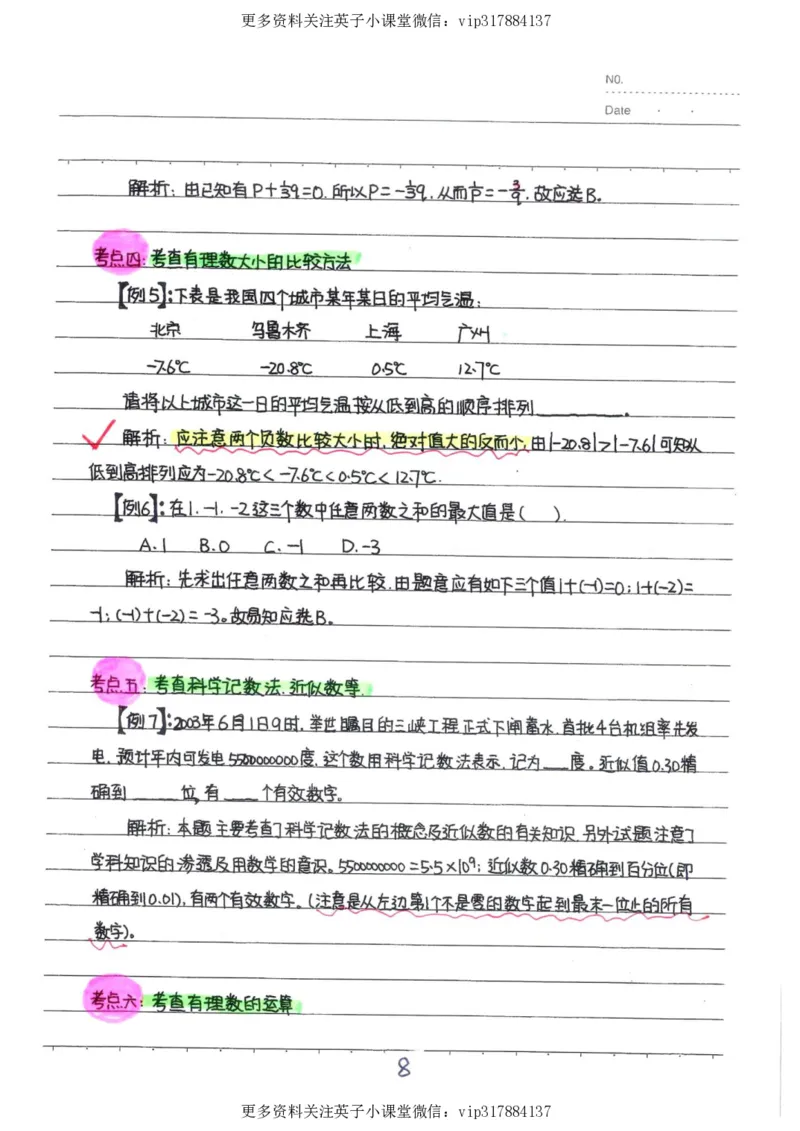 更多资料关注英子小课堂微信：vip317884137
NO.
Date
解析：由已知有P+⅓q=0，所以P=-⅓q，从而p/q=-，故应选B。
考点四：考查有理数大小的比较方法
【例5】：下表是我国四个城市某年某日的平均气温：
北京 乌鲁木齐 上海 广州
-7.6℃ -20.8℃ 0.5℃ 12.7℃
请将以上城市这一日的平均气温按从低到高的顺序排列________。
解析：应注意两个负数比较大小时，绝对值大的反而小，由|-20.8|>|-7.6|可知从
低到高排列应为-20.8℃<-7.6℃<0.5℃<12.7℃.
【例6】：在1，-1，-2这三个数中任意两数之和的最大值是( ).
A.1 B.0 C.-1 D.-3
解析：先求出任意两数之和再比较，由题意应有如下三个值1+(-1)=0；1+(-2)=
-1；(-1)+(-2)=-3。故易知应选B。
考点五：考查科学记数法、近似数等.
【例7】：2003年6月1日9时，举世瞩目的三峡工程正式下闸蓄水，首批4台机组率先发
电，预计年内可发电5500000000度，这个数用科学记数法表示，记为___度。近似值0.30精
确到____位，有___个有效数字。
解析：本题主要考查了科学记数法的概念及近似数的有关知识，另外试题注意了
学科知识的渗透及用数学的意识。550000000=5.5×10⁹；近似数0.30精确到百分位(即
精确到0.01)，有两个有效数字。(注意是从左边第1个不是零的数字起到最末一位止的所有
数字)。
考点六：考查有理数的运算
8
更多资料关注英子小课堂微信：vip317884137